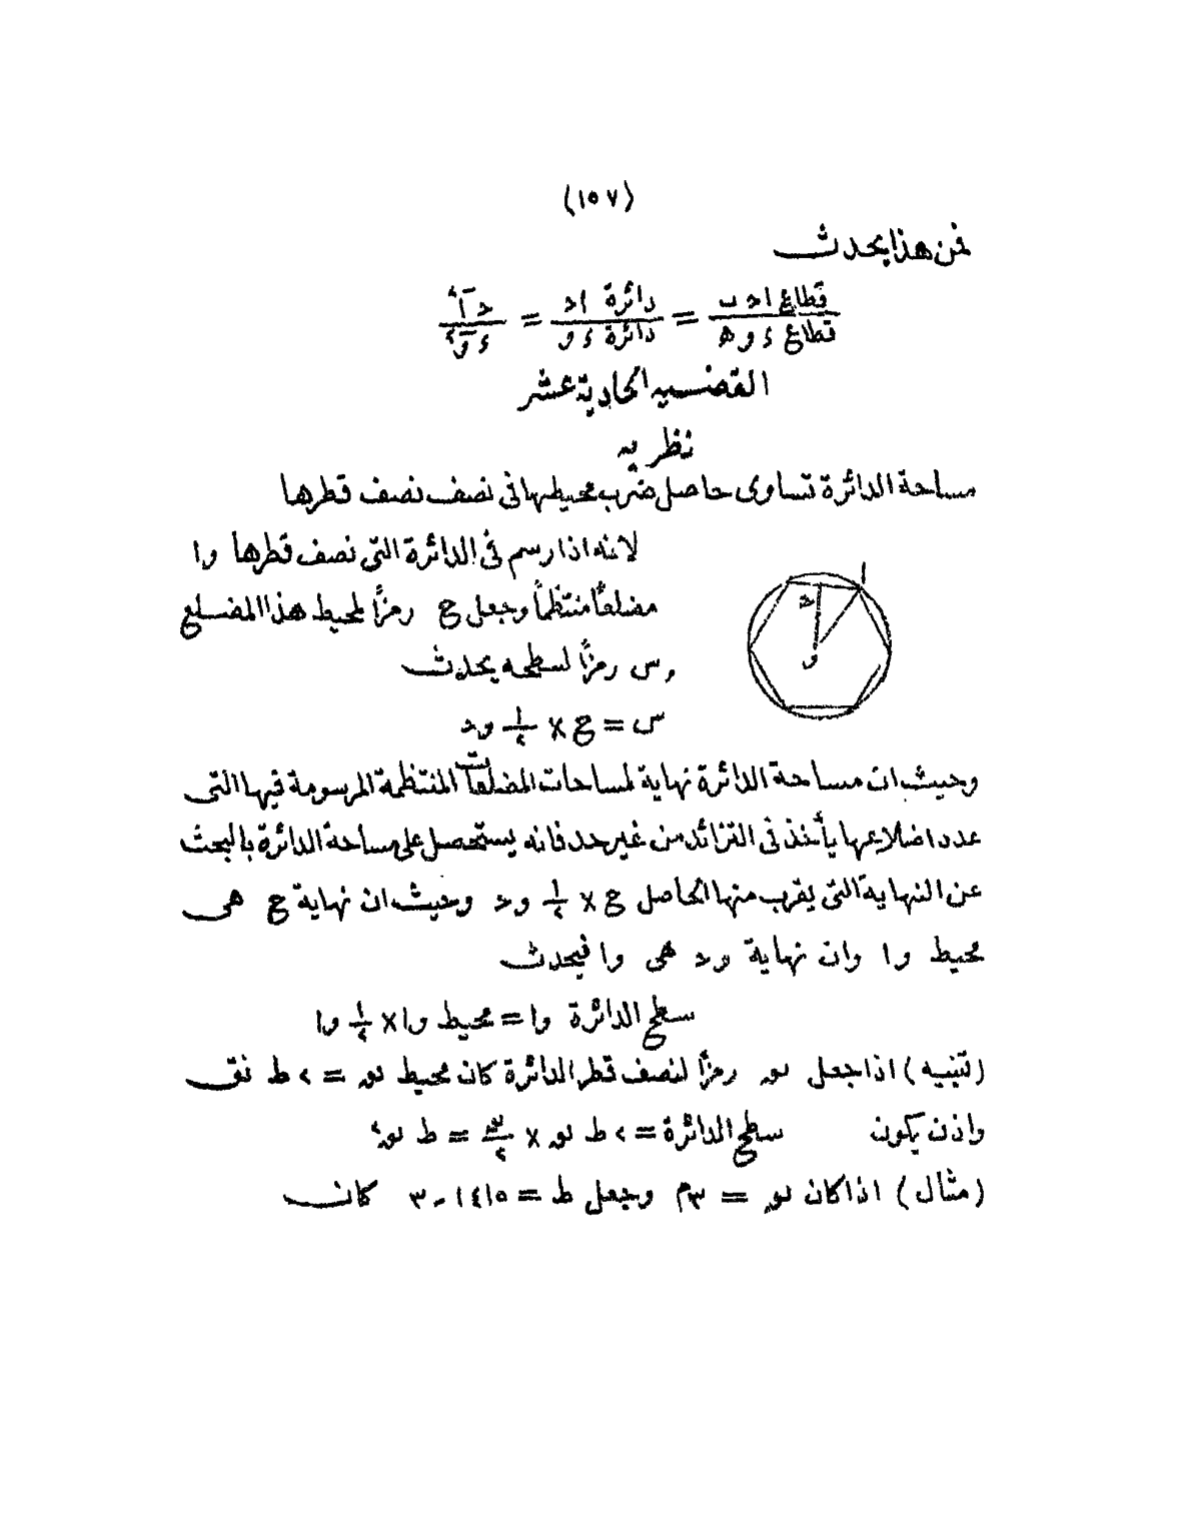 (١٥٧)
فمن هذا يحدث
قطاع احب / قطاع ء و ه = دائرة اح / دائرة ء و = حا٢ / ء و٢
القضيه الحادية عشر
نظريه
مساحة الدائرة تساوى حاصل ضرب محيطها فى نصف نصف قطرها
لانه اذا رسم فى الدائرة التى نصف قطرها وا
مضلعًا منتظمًا وجعل ع رمزًا لمحيط هذا المضلع
وس رمزًا لسطحه يحدث
س = ع × ١/٢ وح
ا
ح
و
وحيث ان مساحة الدائرة نهاية لمساحات المضلعات المنتظمة المرسومة فيها التى
عدد اضلاعها يأخذ فى التزائد من غير حد فانه يستحصل على مساحة الدائرة بالبحث
عن النهاية التى يقرب منها الحاصل ع × ١/٢ وح وحيث ان نهاية ع هى
محيط وا وان نهاية وح هى وا فيحدث
سطح الدائرة وا = محيط وا × ١/٢ وا
(تنبيه) اذا جعل نق رمزًا لنصف قطر الدائرة كان محيط نق = ٢ ط نق
واذن يكون سطح الدائرة = ٢ ط نق × نق/٢ = ط نق٢
(مثال) اذا كان نق = ٣م وجعل ط = ٣٫١٤١٥ كان